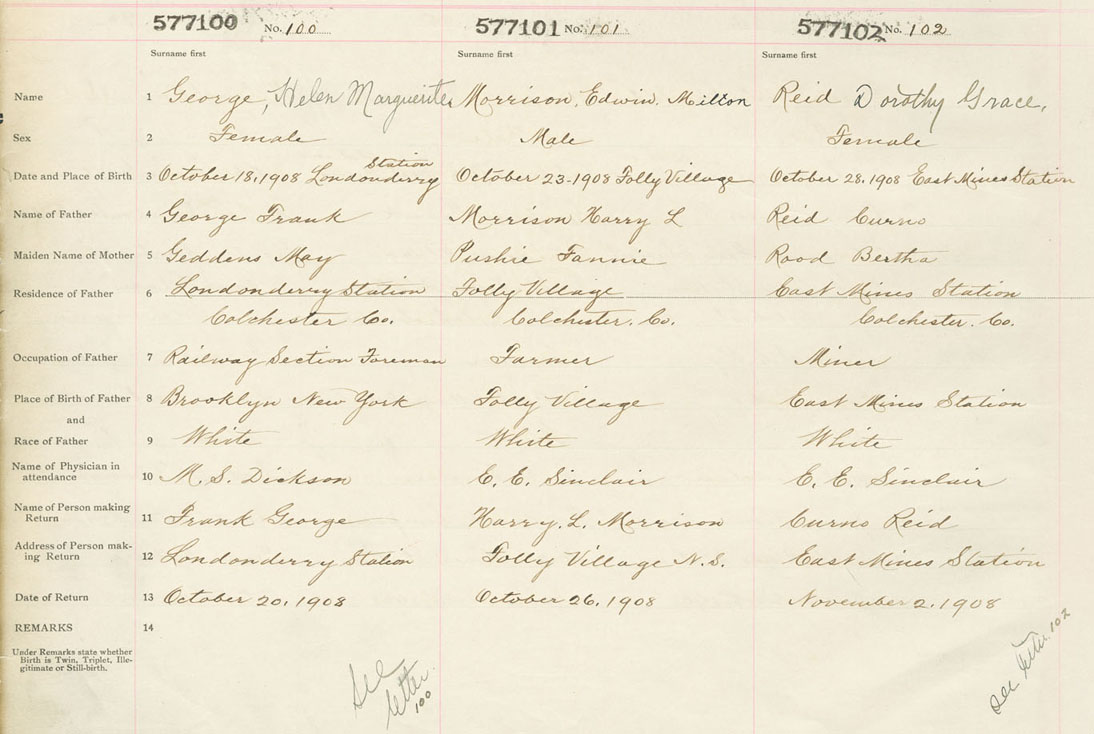 577100 No. 100 577101 No. 101 577102 No. 102
Surname first Surname first Surname first
Name 1 George, Helen Marguerite Morrison, Edwin, Milton Reid Dorothy Grace,
Sex 2 Female Male Female
Station
Date and Place of Birth 3 October 18, 1908 Londonderry October 23-1908 Folly Village October 28, 1908 East Mines Station
Name of Father 4 George Frank Morrison Harry L Reid Curno
Maiden Name of Mother 5 Geddens May Pushie Fannie Rood Bertha
Residence of Father 6 Londonderry Station Folly Village East Mines Station
Colchester Co. Colchester. Co. Colchester. Co.
Occupation of Father 7 Railway Section Foreman Farmer Miner
Place of Birth of Father 8 Brooklyn New York Folly Village East Mines Station
and
Race of Father 9 White White White
Name of Physician in
attendance 10 M. S. Dickson E. E. Sinclair E. E. Sinclair
Name of Person making
Return 11 Frank George Harry. L. Morrison Curno Reid
Address of Person mak-
ing Return 12 Londonderry Station Folly Village N.S. East Mines Station
Date of Return 13 October 20, 1908 October 26, 1908 November 2, 1908
REMARKS 14
Under Remarks state whether
Birth is Twin, Triplet, Ille-
gitimate or Still-birth.
See
letter
100
See letter 102